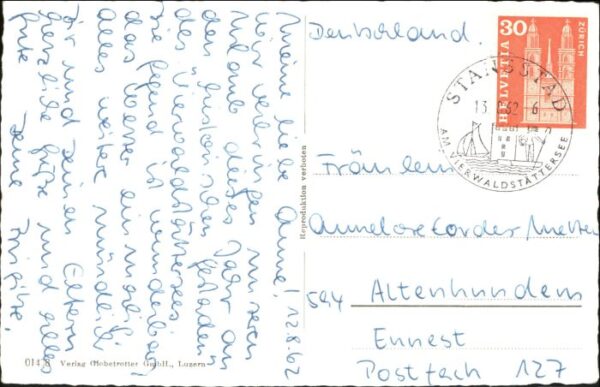 Meine liebe Anne! 12.8.62
Wir verbringen unseren
Urlaub dieses Jahr an
den historischen Gestaden
des Vierwaldstättersees.
Die Gegend ist wunderbar,
das Wetter ein
Alles weitere mündlich
Dir und Deinen Eltern
herzliche Grüße und alles
Gute Deine Brigitte.
Deutschland.
HELVETIA 30
ZÜRICH
STANSSTAD
13. 62-6
AM VIERWALDSTÄTTERSEE
Reproduktion verboten
Fräulein
Annelore Cordes
594 Altenhundem
Ennest
Postfach 127
Verlag Globetrotter GmbH., Luzern